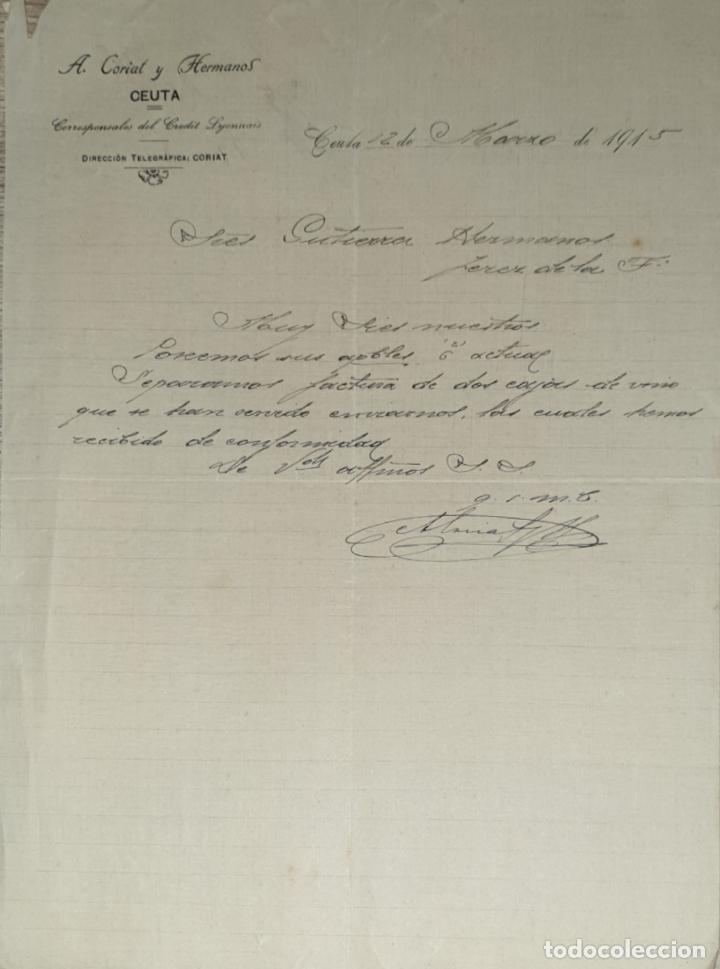 A. Coriat y Hermanos
CEUTA
Corresponsales del Credit Lyonnais
DIRECCIÓN TELEGRÁFICA: CORIAT
Ceuta 12 de Marzo de 1915
Sres Gutierrez Hermanos
Jerez de la F.
Muy Sres nuestros
Poseemos sus gobles. 6 actual
Separamos factura de dos cajas de vino
que se han servido enviarnos, las cuales hemos
recibido de conformidad
De Vds affmos S. S.
q. s. m. b.
todocoleccion